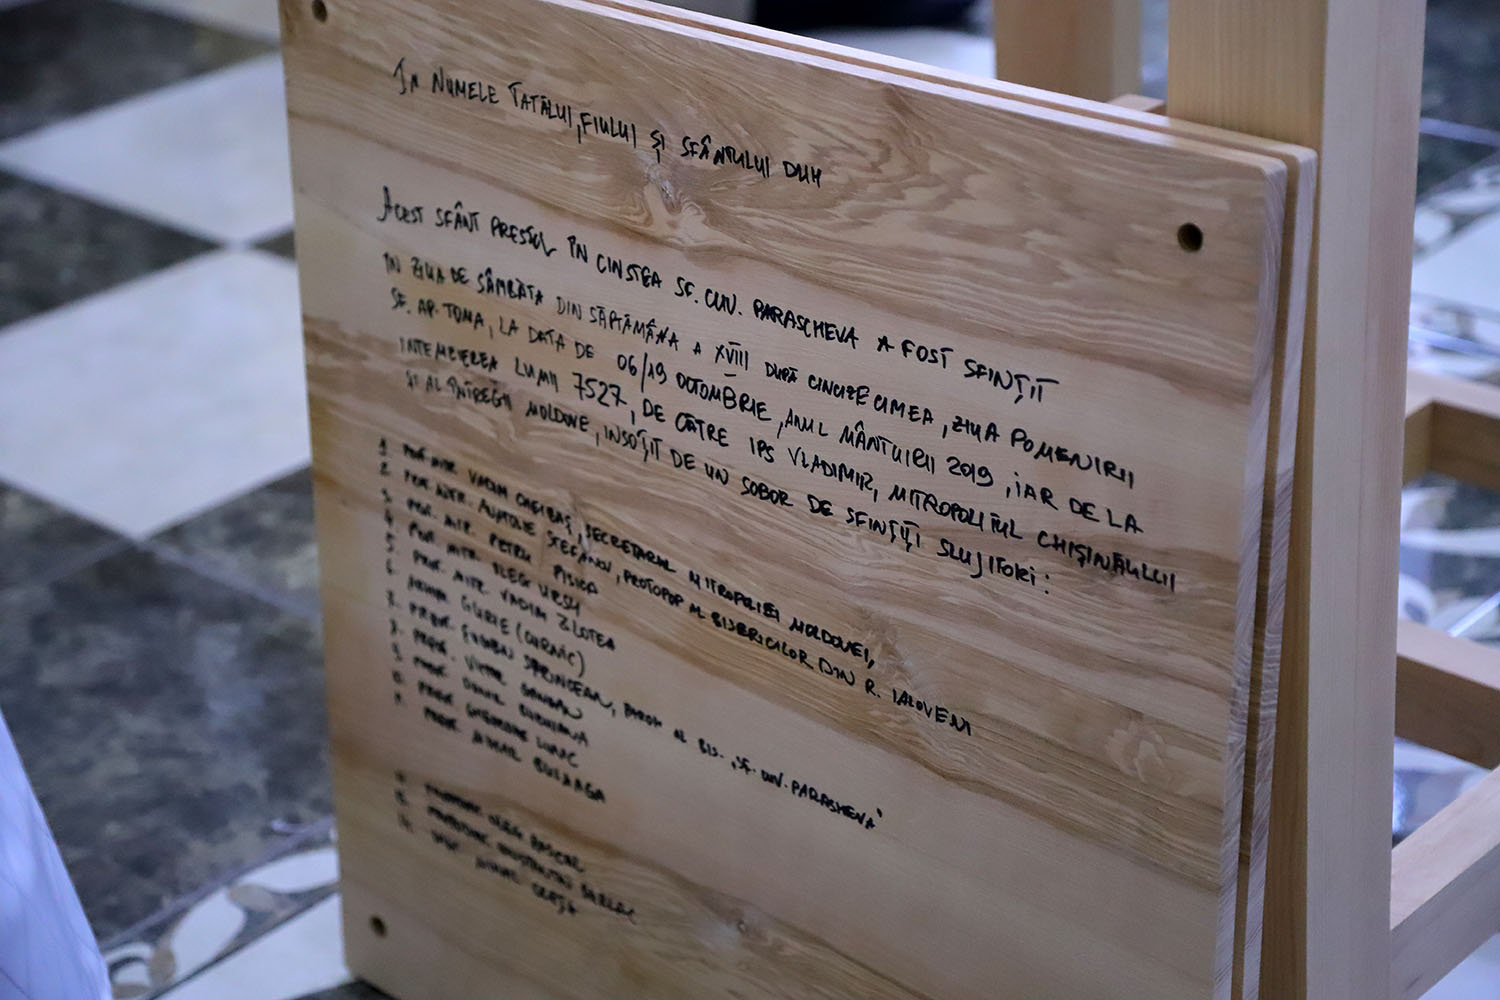 În numele Tatălui, Fiului și Sfântului Duh
Acest sfânt prestol în cinstea Sf. Cuv. Parascheva a fost sfințit
în ziua de sâmbăta din săptămâna a XVIII după Cincizecimea, ziua pomenirii
Sf. Ap. Toma, la data de 06/19 octombrie, anul mântuirii 2019, iar de la
întemeierea lumii 7527, de către IPS Vladimir, Mitropolitul Chișinăului
și al întregii Moldove, însoțit de un sobor de sfințiți slujitori:
1. Prot. mitr. Vadim Cheibaș, secretarul Mitropoliei Moldovei,
2. Prot. mitr. Anatolie Ștefanov, protopop al bisericilor din r. Ialoveni
3. Prot. mitr. Petru Pisica
4. Prot. mitr. Oleg Ursu
5. Prot. mitr. Vadim Zlotea
6. Arhim. Gurie
7. Sprincean, paroh al bis. „Sf. Cuv. Parascheva"
8. Victor
9.
10. Gheorghe
11. Mihail Buzaga
Oleg
Constantin
Mihail